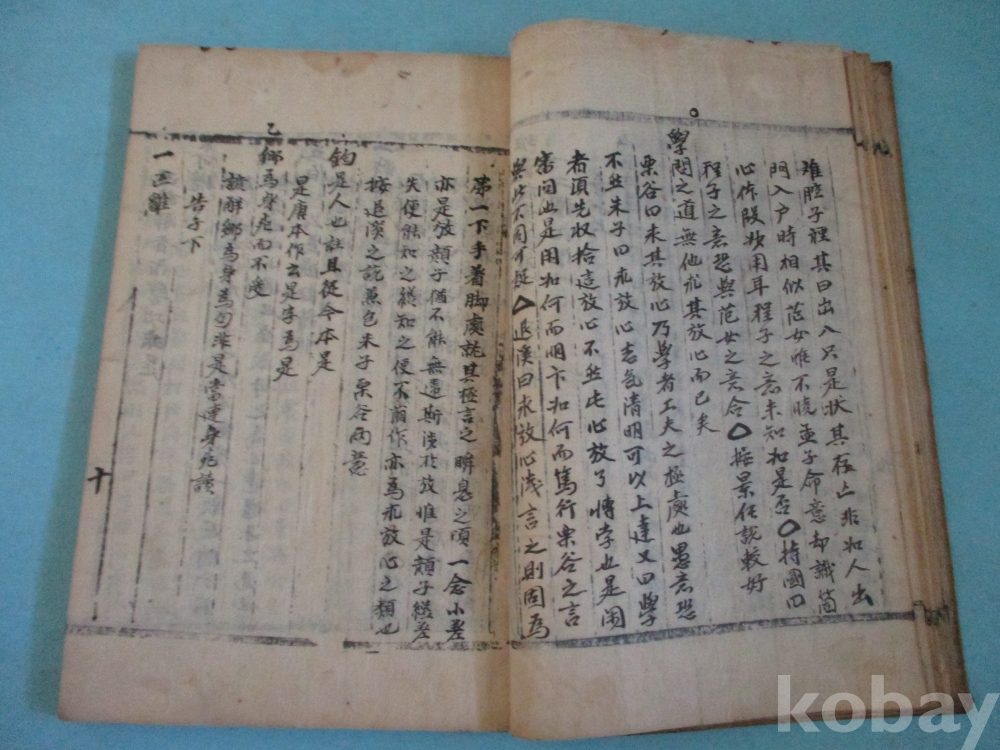 难腔子裡其曰出入只是状其存亡非如人出
門入户時相似范女雖不曉孟子命意却識箇
心作段妙用耳程子之意未知如是否△持國曰
程子之意恐與范女之意合△按景任說較好
學問之道無他求其放心而已矣
栗谷曰求其放心乃學者工夫之極處也愚意恐
不然朱子曰求放心志氣清明可以上達又曰學
者須先收拾這放心不然此心放了博学也是閑
審问也是闲如何而明卞如何而篤行栗谷之言
與此不同可疑△退溪曰求放心淺言之則固為
第一下手著脚處就其極言之瞬息之頃一念小差
亦是放顔子猶不能無違斯須於放惟是顔子纔差
失便能知之纔知之便不萌作亦為求放心之類也
按退溪之說兼包朱子栗谷两意
鈞是人也註且從今本是
是庚本作云是字為是
鄉為身死而不受
諺解鄉為身為句非是當連身死讀
告子下
一匹雛
十
kobay